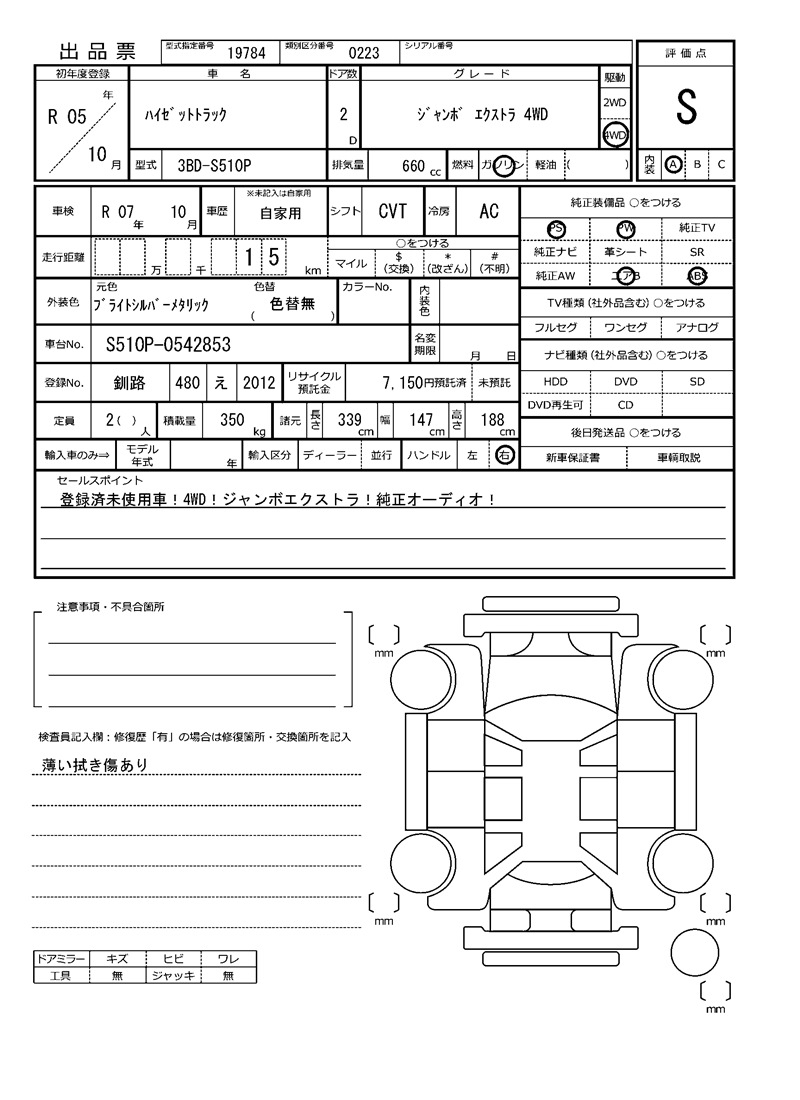 出品票 型式指定番号 19784 類別区分番号 0223 シリアル番号
評価点
S
初年度登録 車 名 ドア数 グレード 駆動
R 05 年 10 月 ﾊｲｾﾞｯﾄﾄﾗｯｸ 2 D ｼﾞｬﾝﾎﾞ ｴｸｽﾄﾗ 4WD 2WD
4WD
型式 3BD-S510P 排気量 660 cc 燃料 ガソリン 軽油 ( ) 内装 A B C
車検 R 07 年 10 月 車歴 ※未記入は自家用 自家用 シフト CVT 冷房 AC
走行距離 万 千 1 5 km ○をつける
マイル $(交換) *(改ざん) #(不明)
外装色 元色 ﾌﾞﾗｲﾄｼﾙﾊﾞｰﾒﾀﾘｯｸ 色替 ( 色替無 ) カラーNo. 内装色
車台No. S510P-0542853 名変期限 月 日
登録No. 釧路 480 え 2012 リサイクル預託金 7,150円預託済 未預託
定員 2 ( ) 人 積載量 350 kg 諸元 長さ 339 cm 幅 147 cm 高さ 188 cm
輸入車のみ⇒ モデル年式 年 輸入区分 ディーラー 並行 ハンドル 左 右
純正装備品 ○をつける
PS PW 純正TV
純正ナビ 革シート SR
純正AW エアB ABS
TV種類 (社外品含む) ○をつける
フルセグ ワンセグ アナログ
ナビ種類 (社外品含む) ○をつける
HDD DVD SD
DVD再生可 CD
後日発送品 ○をつける
新車保証書 車輌取説
セールスポイント
登録済未使用車！4WD！ジャンボエクストラ！純正オーディオ！
注意事項・不具合箇所
検査員記入欄：修復歴「有」の場合は修復箇所・交換箇所を記入
薄い拭き傷あり
ドアミラー キズ ヒビ ワレ
工具 無 ジャッキ 無
mm
mm
mm
mm
mm